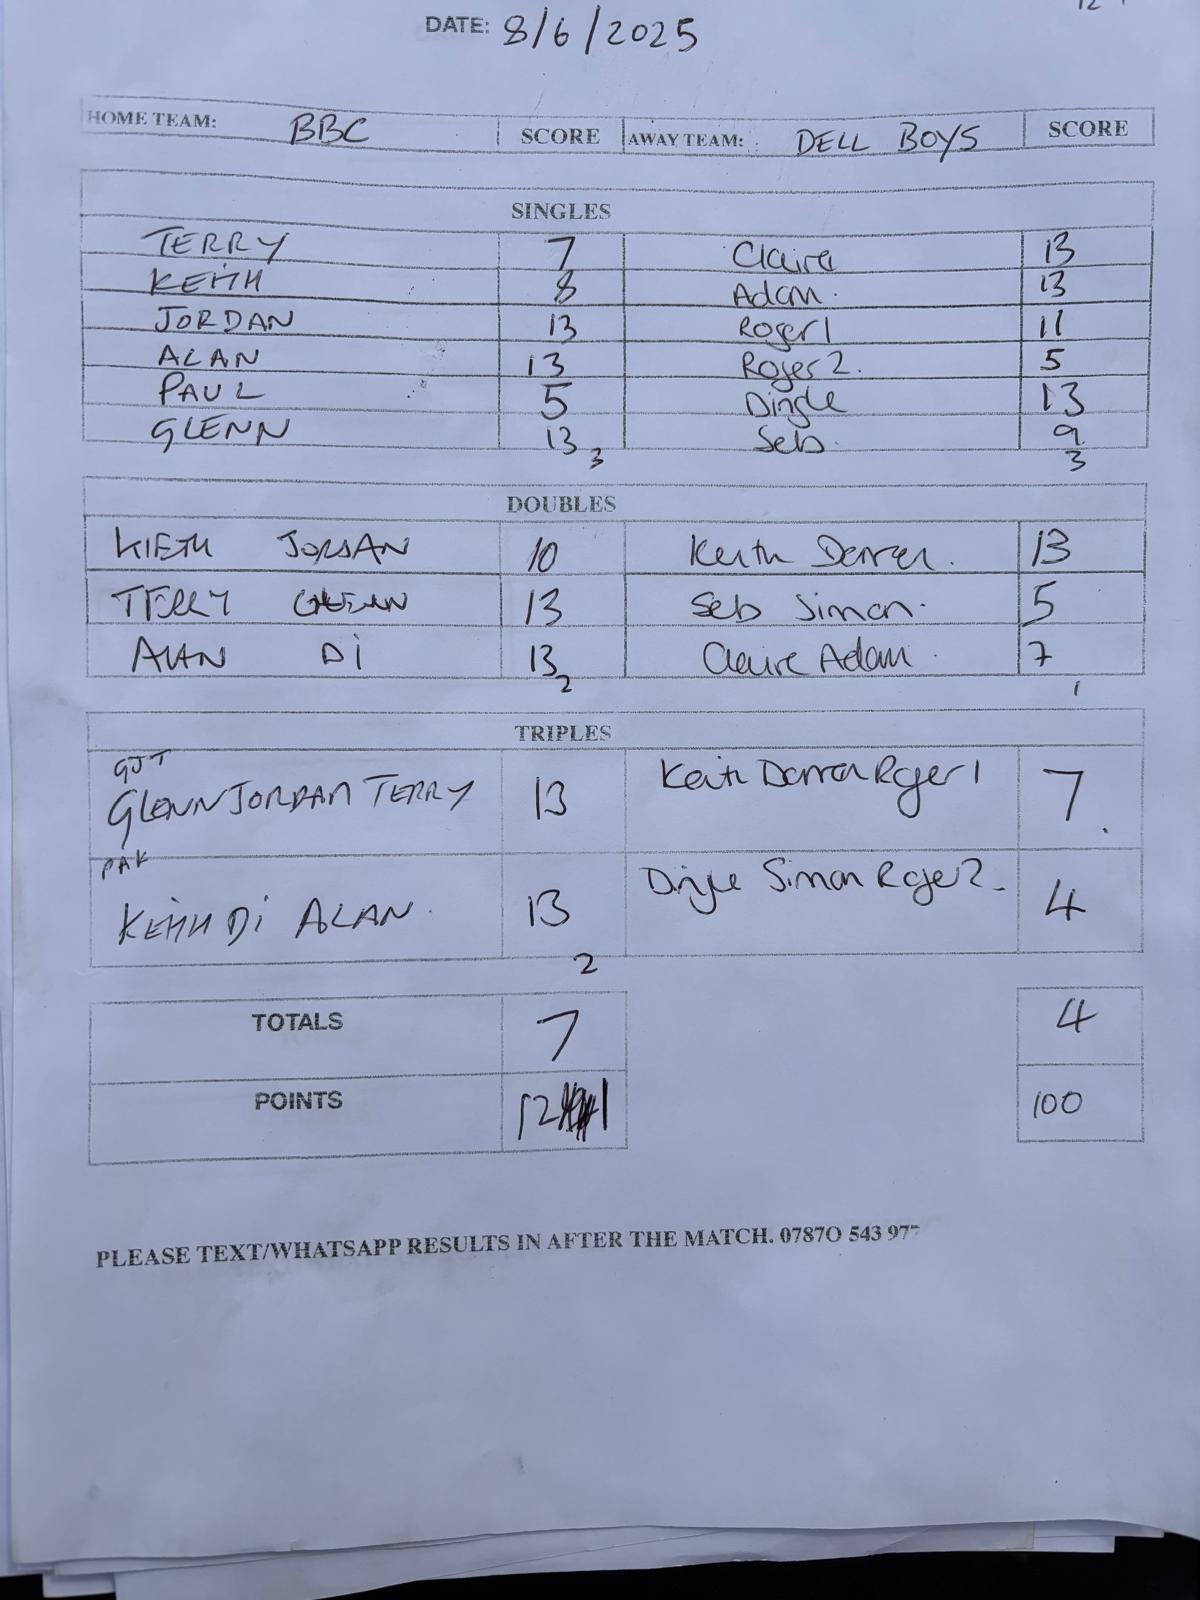 DATE: 8/6/2025
HOME TEAM: BBC SCORE AWAY TEAM: DELL BOYS SCORE
SINGLES
TERRY 7 Claire 13
KEITH 8 Adam 13
JORDAN 13 Roger 1 11
ALAN 13 Roger 2. 5
PAUL 5 Dingle 13
GLENN 13 Seb. 9
3 3
DOUBLES
KIETH JORDAN 10 Keith Darren. 13
TERRY GLENN 13 Seb Simon. 5
ALAN Di 13 Claire Adam. 7
2 1
TRIPLES
GJT
GLENN JORDAN TERRY 13 Keith Darren Roger 1 7
PAK
KEITH Di ALAN. 13 Dingle Simon Roger 2. 4
2
TOTALS 7 4
POINTS 121 100
PLEASE TEXT/WHATSAPP RESULTS IN AFTER THE MATCH. 0787O 543 97